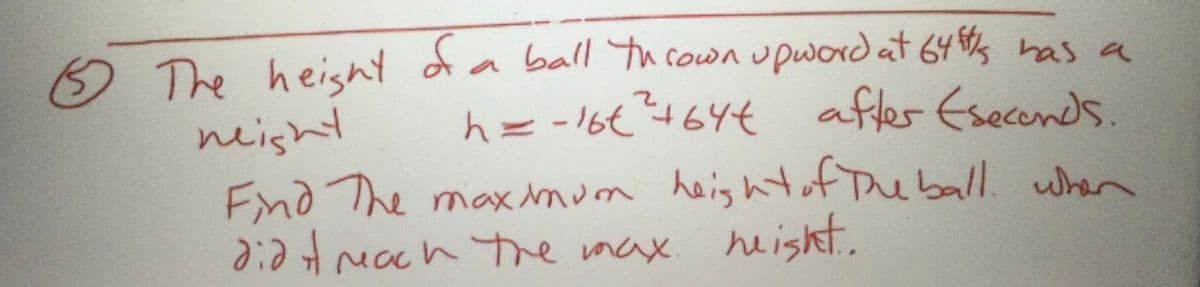 (5) The height of a ball thrown upword at 64 ft/s has a
height h = -16t²+64t after t seconds.
Find The maximum height of The ball. when
did it reach the max. height.